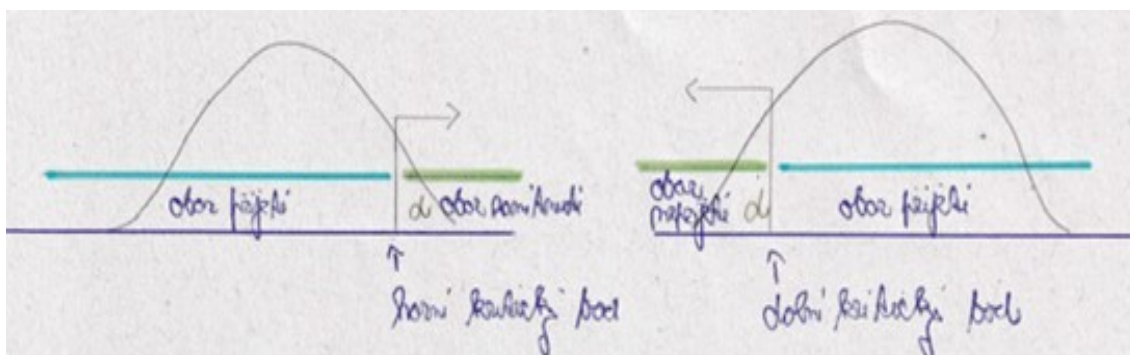 obor přijetí
α obor zamítnutí
horní kritický bod
obor
nepřijetí α
obor přijetí
dolní kritický bod